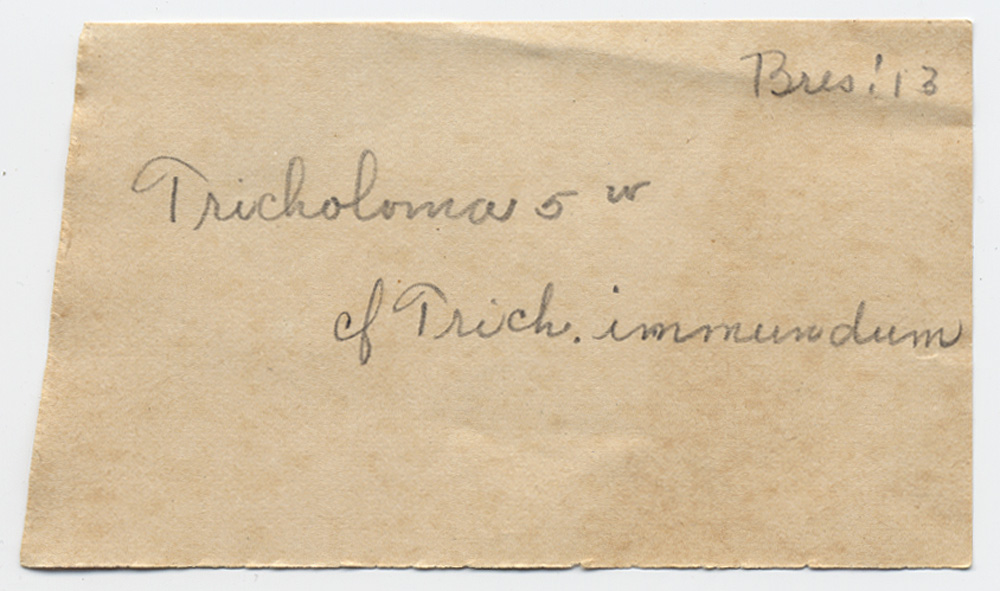 Bres! 13
Tricholoma 5 w
cf Trich. immundum